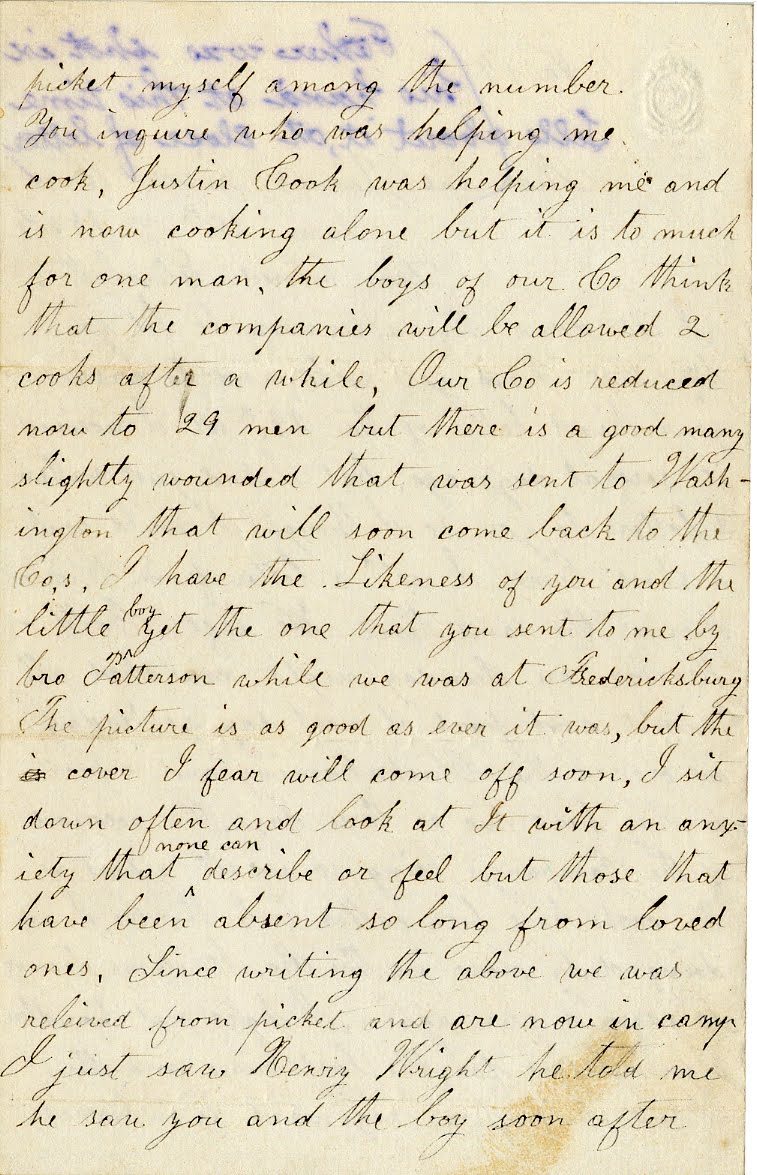 picket myself among the number.
You inquire who was helping me
cook, Justin Cook was helping me and
is now cooking alone but it is to much
for one man, the boys of our Co think
that the companies will be allowed 2
cooks after a while, Our Co is reduced
now to 29 men but there is a good many
slightly wounded that was sent to Wash-
ington that will soon come back to the
Co,s, I have the Likeness of you and the
little boy yet the one that you sent to me by
bro Patterson while we was at Fredericksburg
The picture is as good as ever it was, but the
is cover I fear will come off soon, I sit
down often and look at It with an anx-
iety that none can describe or feel but those that
have been absent so long from loved
ones, Since writing the above we was
releived from picket and are now in camp
I just saw Henry Wright he told me
he saw you and the boy soon after